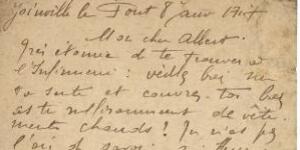 Joinville le Pont 8 Janv 1917
Mon cher Albert.
Très étonné de te trouver à
l'Infirmerie : veille bien sur
ta santé et couvres toi bien
as tu suffisamment de vête
ments chauds ? Tu n'as pas
l'air de